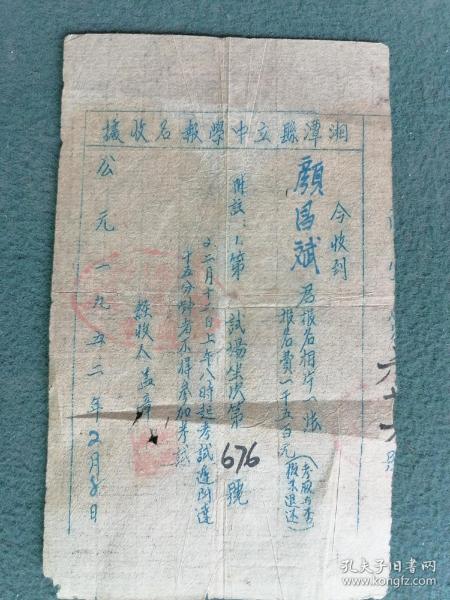 湘潭縣立中學報名收據
今收到
顏昌斌 君报名相片一张
报名費一千五百元（考取与否
概不退还）
附註：1.第 試場坐次第676號
2.二月十二日上午八時起考試遲到達
十五分钟者不得参加考試
經收人 盖章
公元一九五二年2月8日
孔夫子旧书网
www.kongfz.com